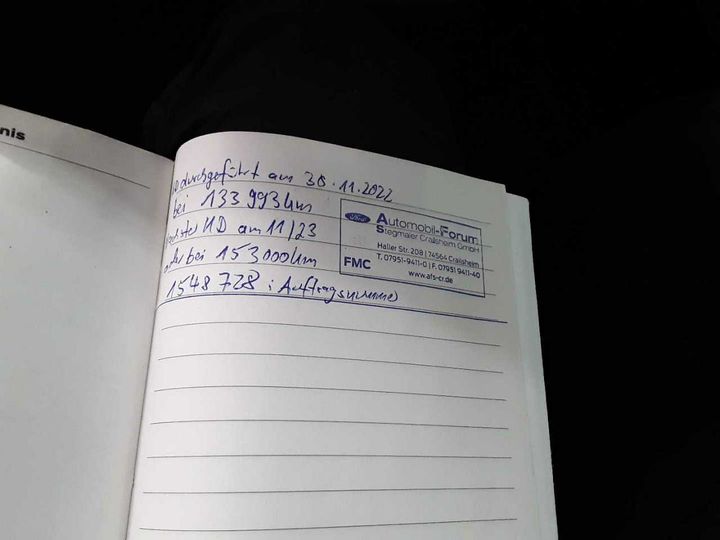 nis
durchgeführt am 30.11.2022
bei 133 993 km
nächster KD am 11/23
oder bei 153000km
1548728 : Auftragsnummer
Ford
Automobil-Forum
Stegmaier Crailsheim GmbH
Haller Str. 208 | 74564 Crailsheim
T. 07951-9411-0 | F. 07951 9411-40
FMC
www.afs-cr.de